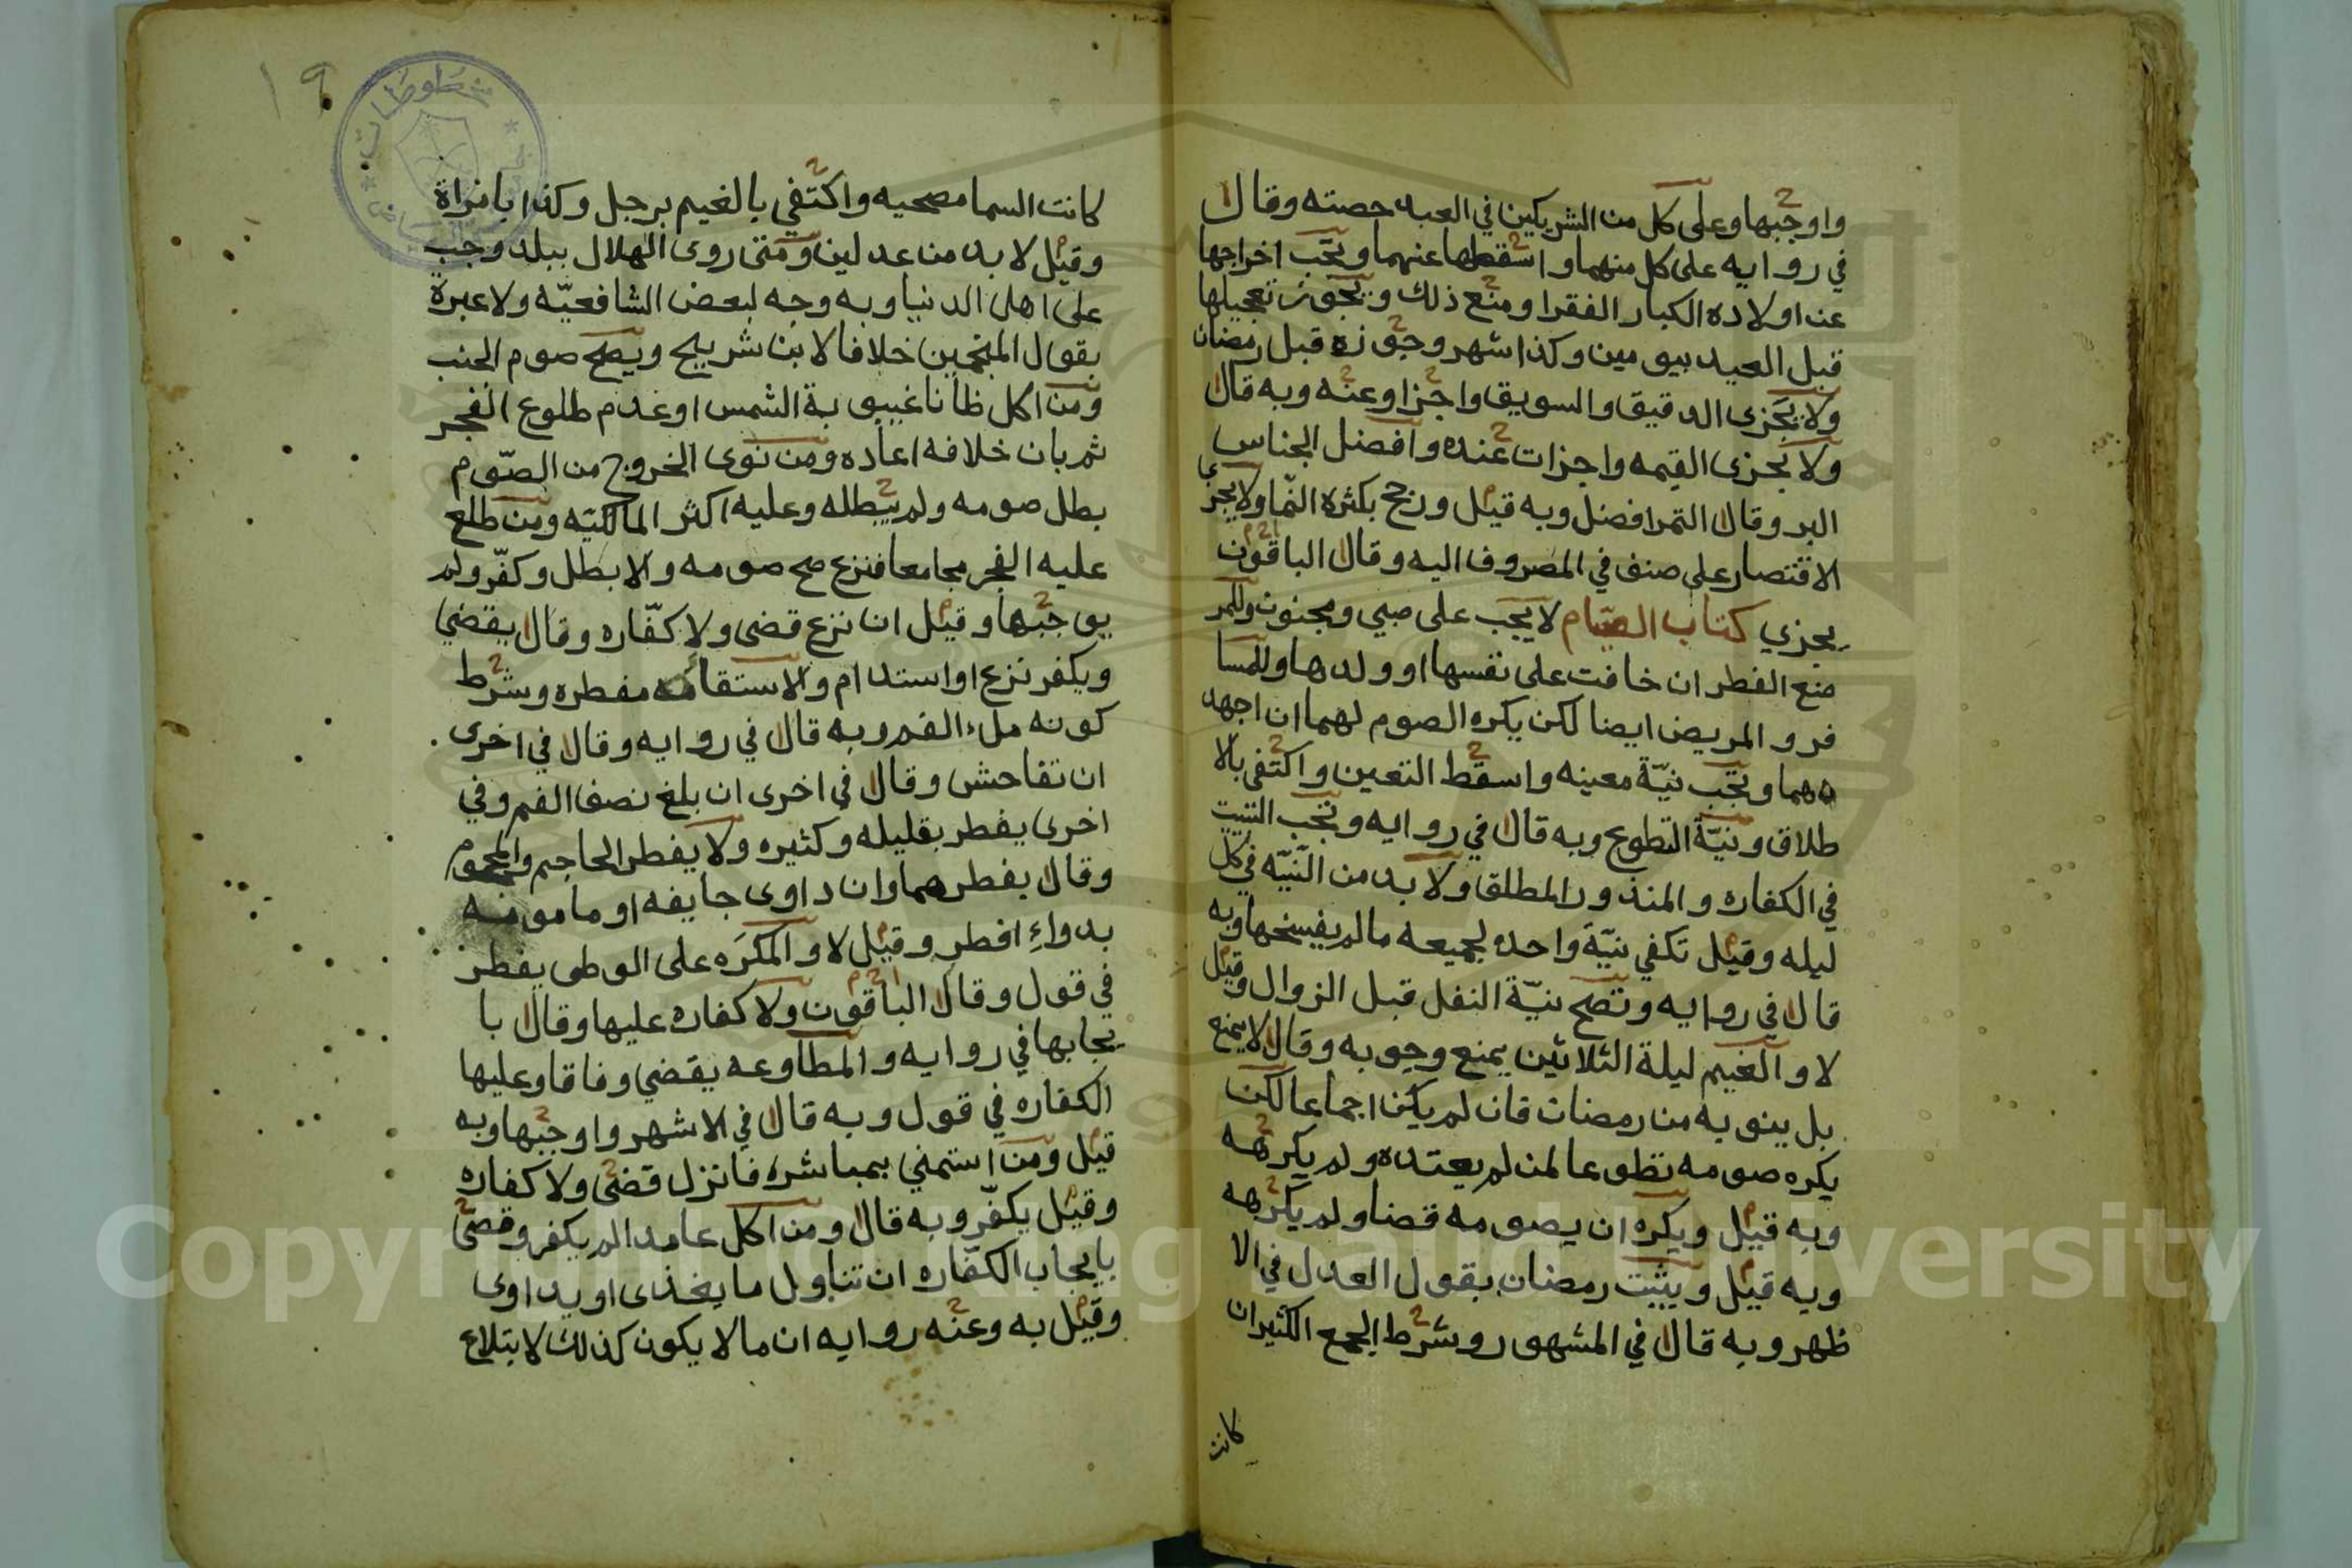 واوجبها وعلى كل من الشريكين في العبد حصته وقال
في روايه على كل منهما واسقطها عنهما وتجب اخراجها
عن اولاده الكبار الفقرا ومنع ذلك ويجوز تعجيلها
قبل العيد بيومين وكذا اشهر وجوزه قبل رمضان
ولا يجزى الدقيق والسويق واجزا وعنه وبه قال
ولا تجزى القيمه واجزات عنده وافضل الجناس
البر وقال التمر افضل وبه قيل ورجح بكثرة النما ولا يجزي
الاقتصار على صنف في المصروف اليه وقال الباقون
يجزي كتاب الصيام لا يجب على صبي ومجنون وللمر
ضع الفطر ان خافت على نفسها او ولدها وللمسا
فر والمريض ايضا لكن يكره الصوم لهما ان اجهد
هما وتجب نيّة معينه واسقط التعين واكتفى بالا
طلاق ونيّة التطوع وبه قال في روايه وتجب التبيت
في الكفاره والمنذور المطلق ولا بد من النيّه في كل
ليله وقيل تكفي نيّة واحده لجميعه مالم يفسخها وبه
قال في روايه وتصح نيّة النفل قبل الزوال وقيل
لا والغيم ليلة الثلاثين يمنع وجوبه وقال لا يمنع
بل ينوى به من رمضان فان لم يكن اجماعا لكن
يكره صومه تطوعا لمن لم يعتده ولم يكرهه
وبه قيل ويكره ان يصومه قضا ولم يكرهه
وبه قيل ويثبت رمضان بقول العدل في الا
ظهر وبه قال في المشهور وشرط الجمع الكثير ان
كانت
١٩
مخطوطات
كانت السما مصحيه واكتفي بالغيم برجل وكذا بامراة
وقيل لا بد من عدلين ومتى روى الهلال ببلد وجب
على اهل الدنيا وبه وجه لبعض الشافعيّه ولا عبرة
بقول المنجمين خلافا لابن شريح ويصح صوم الجنب
ومن اكل ظانا غيبوبة الشمس او عدم طلوع الفجر
ثم بان خلافه اعاده ومن نوى الخروج من الصّوم
بطل صومه ولم يبطله وعليه اكثر المالكيّه ومن طلع
عليه الفجر مجامعا فنزع صح صومه والا بطل وكفّر ولم
يوجبها وقيل ان نزع قضى ولا كفّاره وقال يقضي
ويكفر نزع او استدام والاستقامه مفطره وشرط
كونه ملء الفم وبه قال في روايه وقال في اخرى
ان تفاحش وقال في اخرى ان بلغ نصف الفم وفي
اخرى يفطر بقليله وكثيره ولا يفطر الحاجم والمحجوم
وقال يفطرهما وان داوى جايفه او مامومه
بدواءٍ افطر وقيل لا والمكرَه على الوطى يفطر
في قول وقال الباقون ولا كفاره عليها وقال با
يجابها في روايه والمطاوعه يقضي وفاقا وعليها
الكفاره في قول وبه قال في الاشهر واوجبها وبه
قيل ومن استمني بمباشره فانزل قضى ولا كفاره
وقيل يكفّر وبه قال ومن اكل عامدا لم يكفر وقضى
بايجاب الكفّاره ان تناول ما يغذى او يداوى
وقيل به وعنه روايه ان ما لا يكون كذلك لابتلاع
Copyright © King Saud University